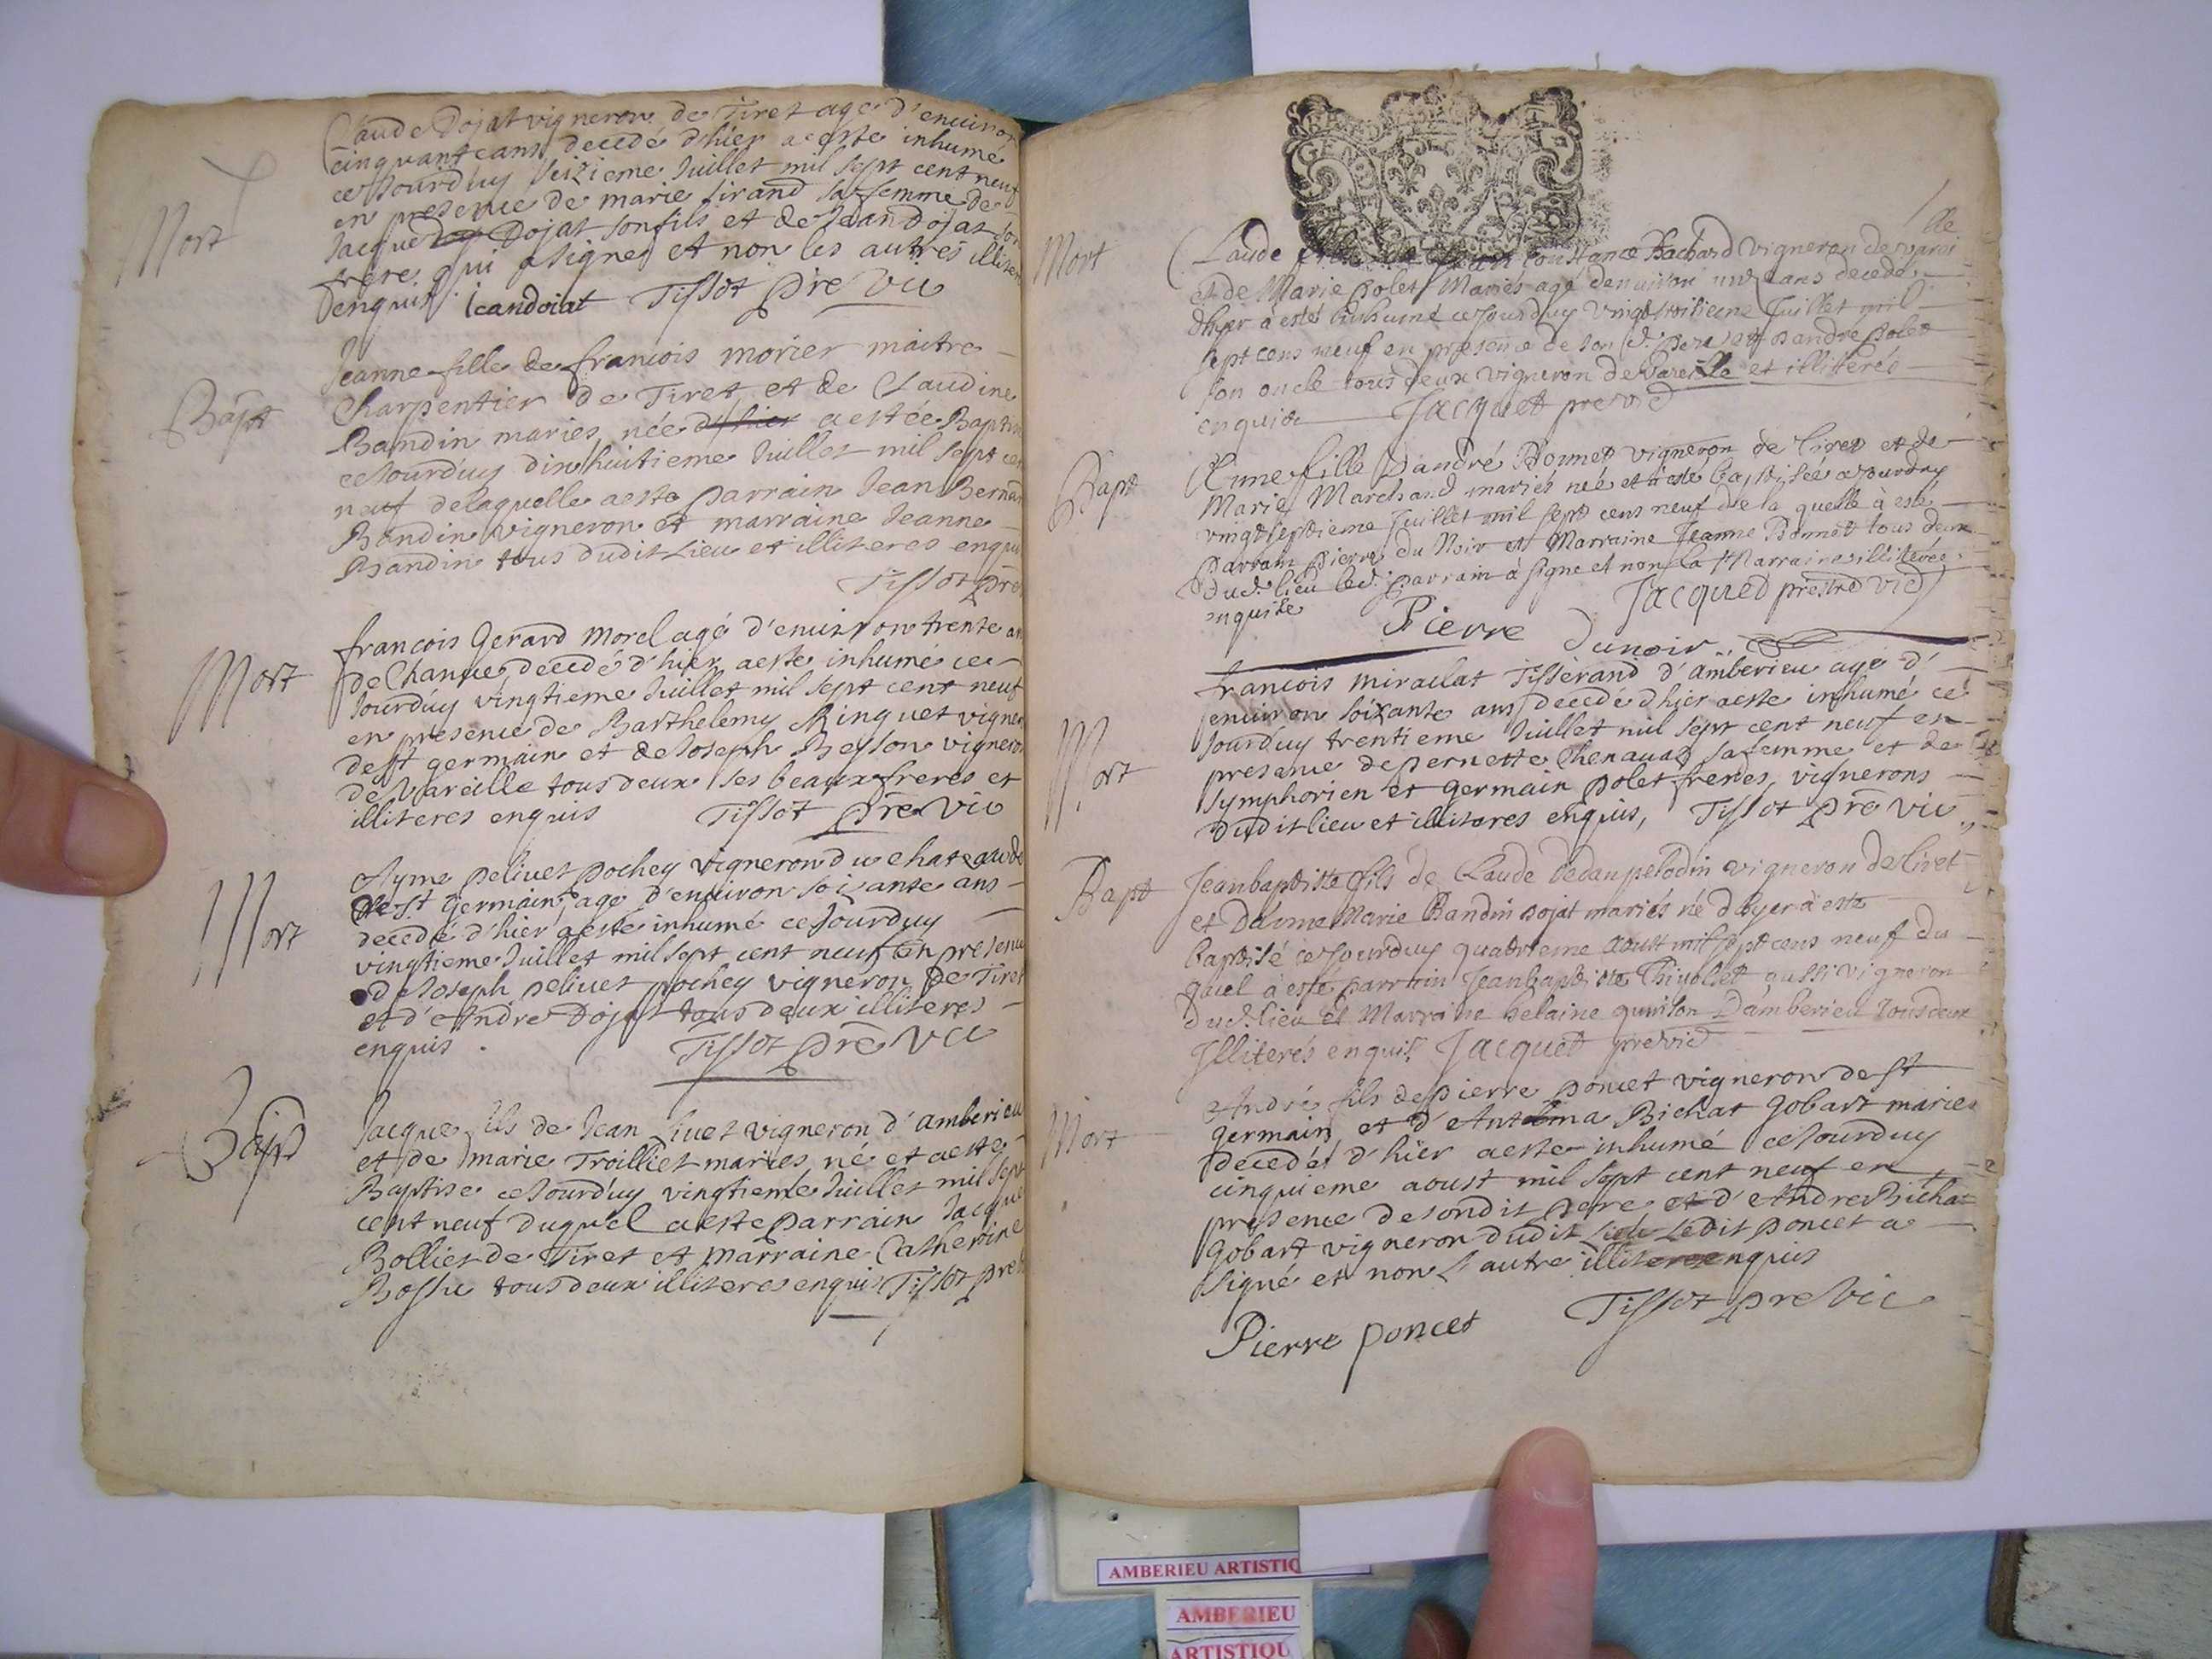 Mort
Claude Dojat vigneron de Tiret agé d'environ
cinquante ans decedé d'hier a este inhumé
ce Jourduy seizieme Juillet mil sept cent neuf
en presence de marie sirand sa femme de
Jacque Dojat son fils et de Jean Dojat son
frere qui a signé et non les autres illiteres
enquis Jean doiat Tissot pre vic
Bapt
Jeanne fille de francois morier maitre
Charpentier de Tiret et de Claudine
Bandin maries née d'hier a estée Baptisée
ce Jourduy dix huitieme Juillet mil sept cent
neuf de laquelle a este parrain Jean Bernard
Bandin vigneron et marraine Jeanne
Bandin tous dudit Lieu et illiteres enquis
Tissot pre
Mort
francois Gerard Morel agé d'environ trente ans
de Chanves decedé d'hier a este inhumé ce
Jourduy vingtieme Juillet mil sept cent neuf
en presence de Barthelemy Ringuet vigneron
de st germain et de Joseph Beyson vigneron
de Vareille tous deux ses beaux freres et
illiteres enquis Tissot pre vic
Mort
Ayme pelivet pochey vigneron du chateau de
de st Germain agé d'environ soixante ans
decedé d'hier a esté inhumé ce Jourduy
vingtieme Juillet mil sept cent neuf en presence
de Joseph pelivet pochey vigneron de Tiret
et d'Andre Dojat tous deux illiteres
enquis Tissot pre vic
Bapt
Jacque fils de Jean Livet vigneron d'amberieu
et de marie Troilliet maries né et a este
Baptise ce Jourduy vingtieme Juillet mil sept
cent neuf duquel a este parrain Jacque
Bolliet de Tiret et marraine Catherine
Bossu tous deux illiteres enquis Tissot pre
Mort
Claude Constance Bachard vigneron de Vareille
et de Marie polet Mariés agé denviron ans decedé
dhyer à esté Inhumé ce Jourduy vingt troisieme Juillet mil
sept cens neuf en presence de son d. pere et dandré polet
son oncle tous deux vigneron de Vareille et illiterés
enquis Jacquet pre vic
Bapt
Anne fille dandré Bonnet vigneron de tiret et de
Marie Marchand mariés né et à esté baptisée ce Jourduy
vingt septieme Juillet mil sept cens neuf de la quelle à esté
parrain pierre du Noir et Marraine Jeanne Bonnet tous deux
dud. lieu led. parrain à signé et non la Marraine illiterée
enquise Jacquet prestre vic
Pierre Dunoir
Mort
francois miraclat Tisserand d'amberieu agé d'
environ soixante ans decedé d'hier a este inhumé ce
Jourduy trentieme Juillet mil sept cent neuf en
presence de pernette Chenavaz sa femme et de
symphorien et germain polet freres, vignerons
dudit lieu et illiteres enquis, Tissot pre vic
Bapt
Jean baptiste fils de Claude pelodin vigneron de tiret
et danne Marie Bandin Dojat mariés né dhyer à este
baptisé ce Jourduy quatrieme aoust mil sept cens neuf du
quel à esté parrain Jean baptiste Thivollet aussi vigneron
dud. lieu et Marraine helaine quinson Damberieu tous deux
Illiterés enquis Jacquet pre vic
Mort
André fils de pierre poncet vigneron de st
germain et d'Antelma Bichat Gobart maries
decedé d'hier a este inhumé ce Jourduy
cinquieme aoust mil sept cent neuf en
presence de son dit pere et d'Andre Bichat
Gobart vigneron dudit Lieu Ledit poncet a
signé et non l'autre illitere enquis
Pierre poncet Tissot pre vic
AMBERIEU ARTISTIQ
AMBERIEU
ARTISTIQU